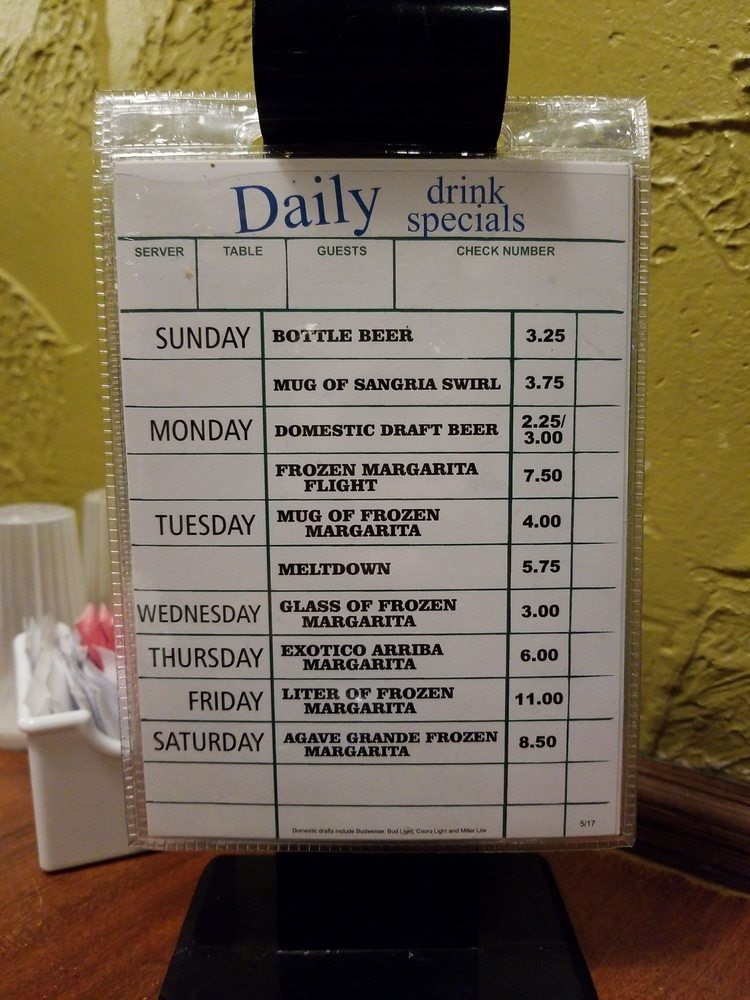 Daily drink
specials
SERVER TABLE GUESTS CHECK NUMBER
SUNDAY BOTTLE BEER 3.25
MUG OF SANGRIA SWIRL 3.75
MONDAY DOMESTIC DRAFT BEER 2.25/
3.00
FROZEN MARGARITA
FLIGHT 7.50
TUESDAY MUG OF FROZEN
MARGARITA 4.00
MELTDOWN 5.75
WEDNESDAY GLASS OF FROZEN
MARGARITA 3.00
THURSDAY EXOTICO ARRIBA
MARGARITA 6.00
FRIDAY LITER OF FROZEN
MARGARITA 11.00
SATURDAY AGAVE GRANDE FROZEN
MARGARITA 8.50
Domestic drafts include Budweiser, Bud Light, Coors Light and Miller Lite
5/17